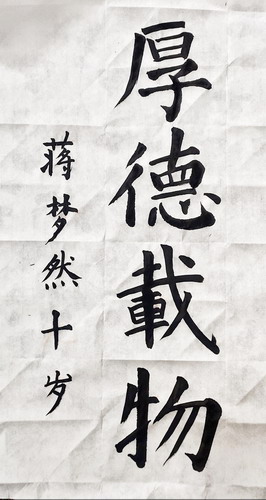 厚德載物
蒋梦然十岁